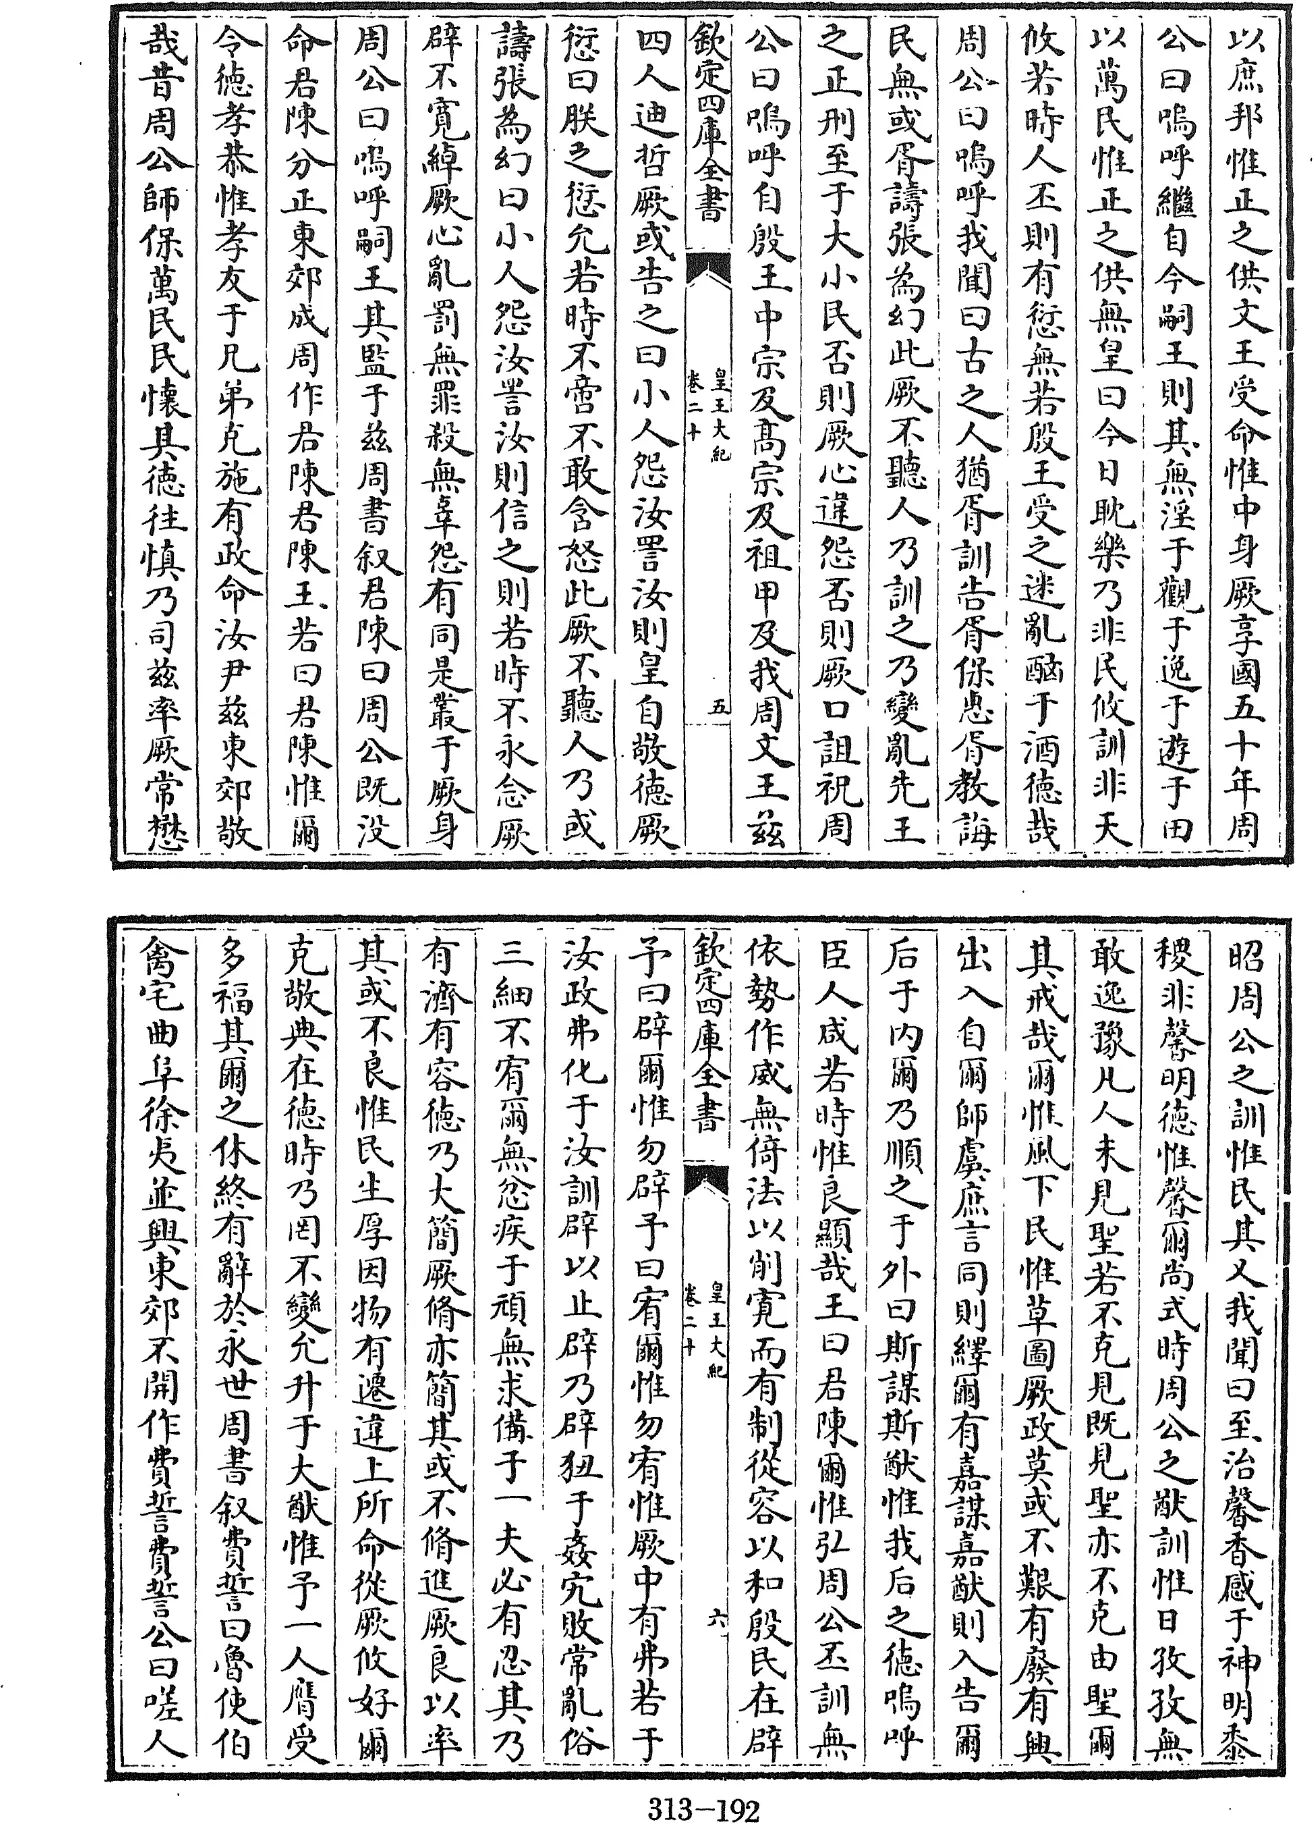 以庶邦惟正之供文王受命惟中身厥享國五十年周
公曰嗚呼繼自今嗣王則其無淫于觀于逸于遊于田
以萬民惟正之供無皇曰今日耽樂乃非民攸訓非天
攸若時人丕則有愆無若殷王受之迷亂酗于酒德哉
周公曰嗚呼我聞曰古之人猶胥訓告胥保惠胥教誨
民無或胥譸張為幻此厥不聽人乃訓之乃變亂先王
之正刑至于大小民否則厥心違怨否則厥口詛祝周
公曰嗚呼自殷王中宗及高宗及祖甲及我周文王兹
欽定四庫全書
皇王大紀
卷二十
五
四人迪哲厥或告之曰小人怨汝詈汝則皇自敬德厥
愆曰朕之愆允若時不啻不敢含怒此厥不聽人乃或
譸張為幻曰小人怨汝詈汝則信之則若時不永念厥
辟不寛綽厥心亂罰無罪殺無辜怨有同是叢于厥身
周公曰嗚呼嗣王其監于兹周書叙君陳曰周公既没
命君陳分正東郊成周作君陳君陳王若曰君陳惟爾
令德孝恭惟孝友于兄弟克施有政命汝尹兹東郊敬
哉昔周公師保萬民民懷其德往慎乃司兹率厥常懋
昭周公之訓惟民其乂我聞曰至治馨香感于神明黍
稷非馨明德惟馨爾尚式時周公之猷訓惟日孜孜無
敢逸豫凡人未見聖若不克見既見聖亦不克由聖爾
其戒哉爾惟風下民惟草圖厥政莫或不艱有廢有興
出入自爾師虞庶言同則繹爾有嘉謀嘉猷則入告爾
后于内爾乃順之于外曰斯謀斯猷惟我后之德嗚呼
臣人咸若時惟良顯哉王曰君陳爾惟弘周公丕訓無
依勢作威無倚法以削寛而有制從容以和殷民在辟
欽定四庫全書
皇王大紀
卷二十
六
予曰辟爾惟勿辟予曰宥爾惟勿宥惟厥中有弗若于
汝政弗化于汝訓辟以止辟乃辟狃于姦宄敗常亂俗
三細不宥爾無忿疾于頑無求備于一夫必有忍其乃
有濟有容德乃大簡厥脩亦簡其或不脩進厥良以率
其或不良惟民生厚因物有遷違上所命從厥攸好爾
克敬典在德時乃罔不變允升于大猷惟予一人膺受
多福其爾之休終有辭於永世周書叙費誓曰魯侯伯
禽宅曲阜徐夷並興東郊不開作費誓費誓公曰嗟人
313-192